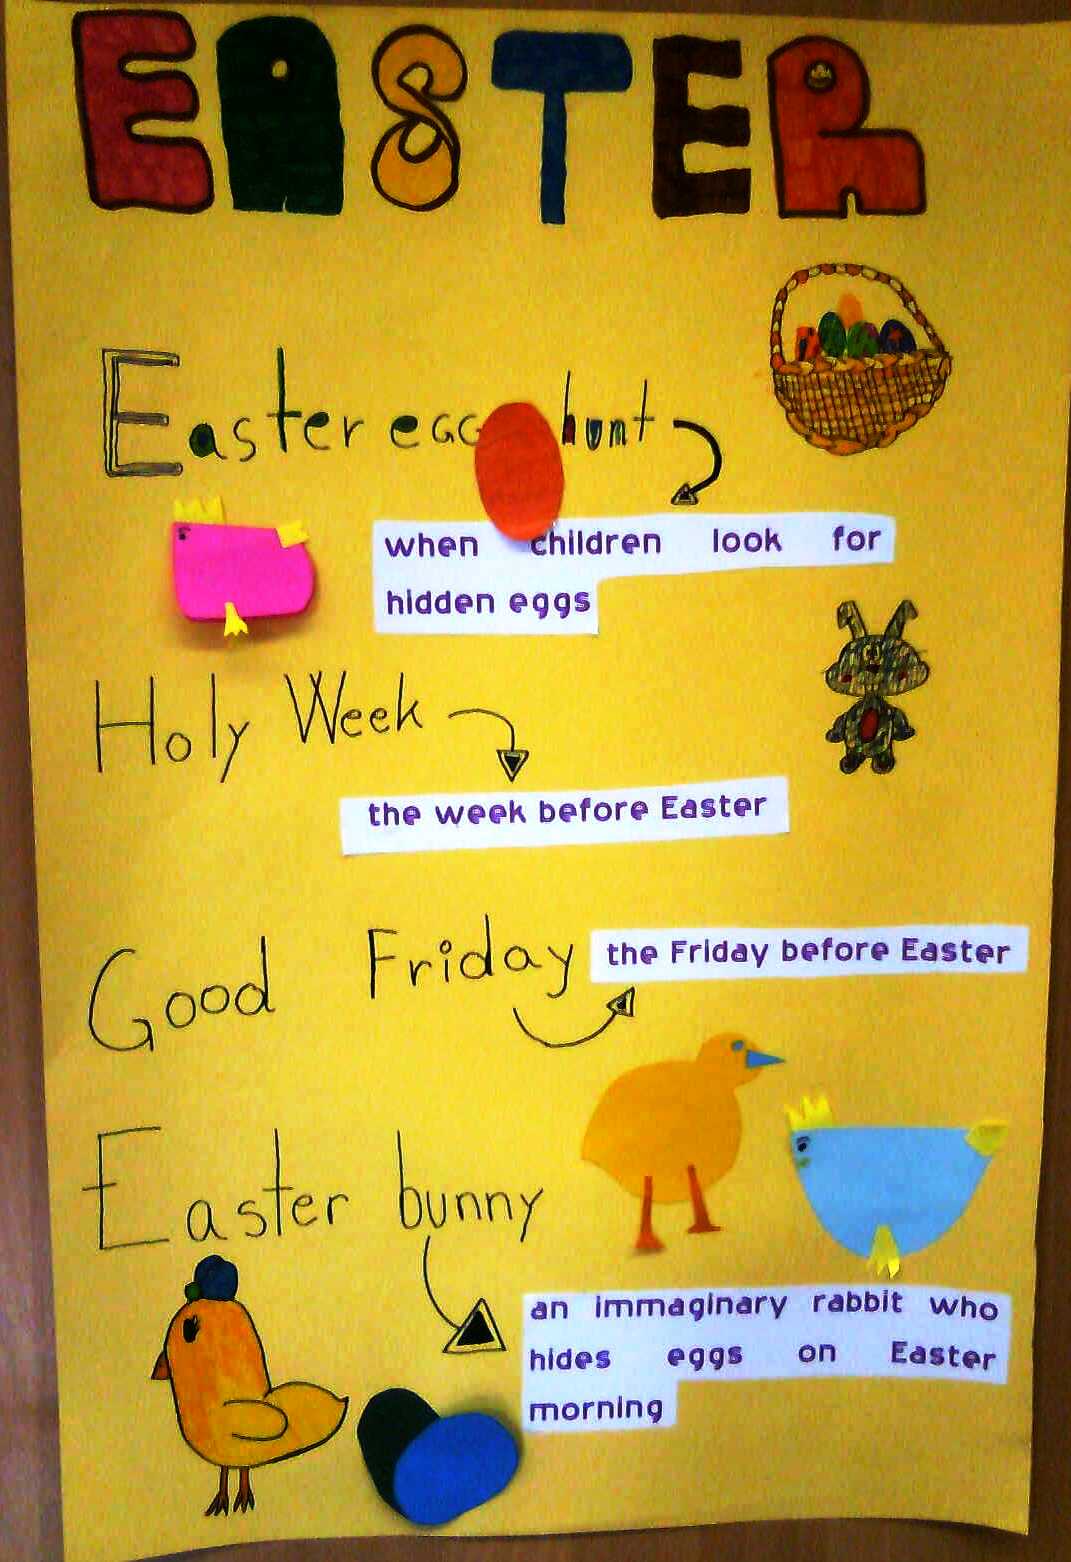 EASTER
Easter egg hunt
when children look for
hidden eggs
Holy Week
the week before Easter
Good Friday
the Friday before Easter
Easter bunny
an immaginary rabbit who
hides eggs on Easter
morning